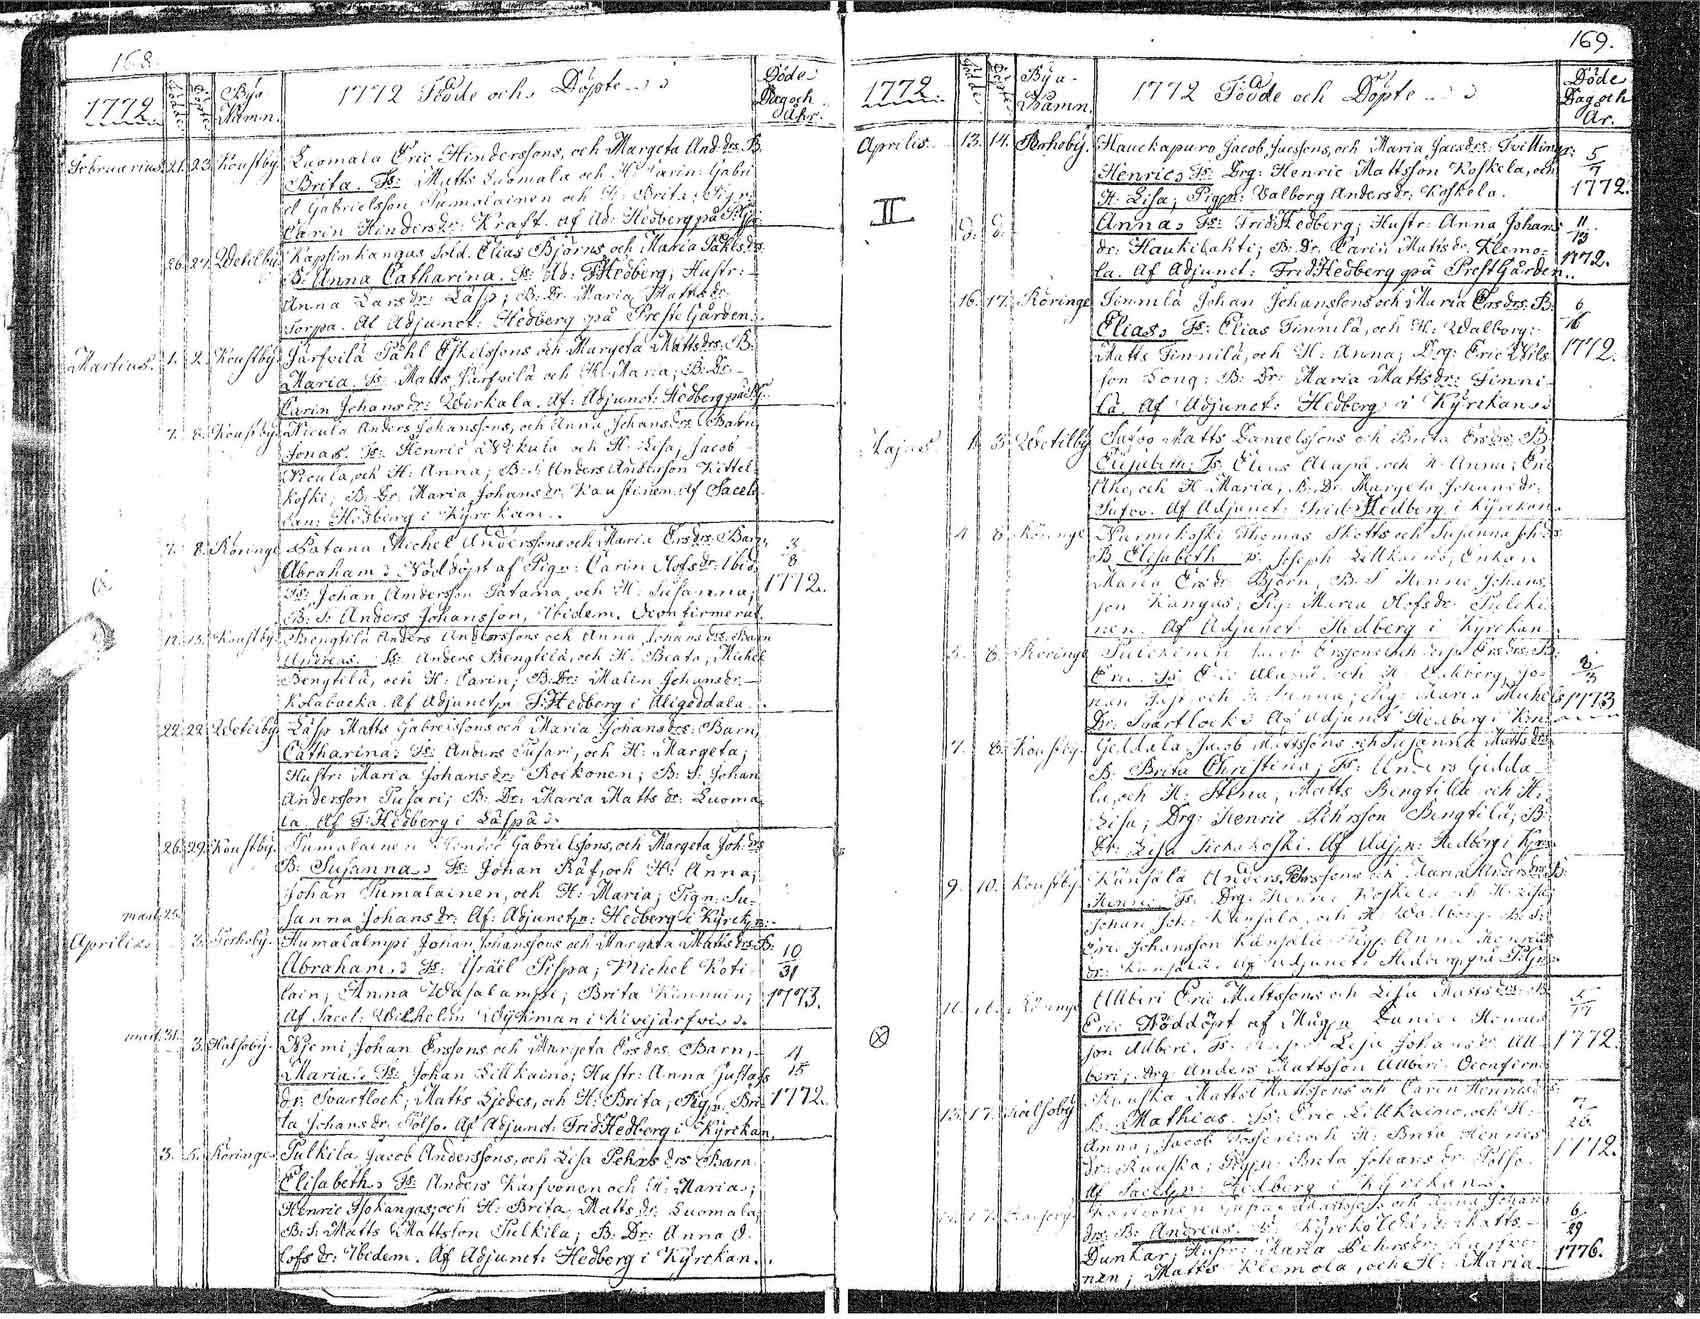 168.
1772
Födde
Döpte
Bya
Namn.
1772 Födde och Döpte
Döde
Dag och
Åhr.
Februarius 21. 23. Kaustby. Luomala Eric Hinderssons, och Margeta And: drs: B.
Brita. Fs: Matts Luomala och H. Carin: Gabri
el Gabrielsson Tumalainen och H: Brita; Pign:
Carin Hindersdr: Kraft. af Ad: Hedberg på
26. 27. Wetilby Kapsinkangas Sold. Elias Björns, och Maria Påhls drs
B: Anna Catharina. Fs: Ad: F:Hedberg; Hustr:
Anna Larsdr: Läsp; B: Dr: Maria Matts dr
Torpa. Af Adjunct: Hedberg på Prestegården.
Martius. 1. 2. Kaustby. Järfvilä Påhl Eskelssons och Margeta Matts drs: B:
Maria. Fs: Matts Järfvilä och H: Maria; B: Dr:
Carin Johans dr: Wirkala. Af: Adjunct: Hedberg på
7. 8. Kaustby. Nicula Anders Johanssons, och Anna Johans drs: Barn,
Jonas. Fs: Henric Nikula och H: Lisa, Jacob
Nicula, och H: Anna; B: S: Anders Andersson Kittel
koski; B: Dr: Maria Johans dr: Kaustinen. Af Sacel-
lan: Hedberg i Kyrckan.
7. 8. Röringe Patana Michel Anderssons och Maria Ers drs: Barn,
Abraham. Nöddöpt af Pign: Carin Olofs dr: Ibid,
Fs: Johan Andersson Patana, och H: Susanna;
B: S: Anders Johansson, Ibidem. Oconfirmerat.
3/8
1772.
12. 15. Kaustby. Bengtilä Anders Anderssons och Anna Johans drs: Barn
Andreas. Fs: Anders Bengtilä, och H: Beata; Michel
Bengtilä, och H: Carin; B: Dr: Malin Johans dr:
Kolabacka. Af Adjunct: F:Hedberg i Aligeddala.
22. 22. Wetilby. Läsp Matts Gabrielssons och Maria Johans drs: Barn,
Catharina; Fs: Anders Pusari, och H: Margeta;
Hustr: Maria Johans dr: Roikonen; B: S: Johan
Andersson Pusari; B: Dr: Maria Matts dr: Luoma
la. Af F:Hedberg i Läspä.
26. 29. Kaustby. Tumalainen Henric Gabrielssons, och Margeta Joh: drs
B: Susanna; Fs: Johan Räf, och H: Anna;
Johan Tumalainen, och H: Maria; Pign: Su-
sanna Johans dr: Af: Adjunct: Hedberg i Kyrckn:
mart. 25.
Aprilis. 3. Perhoby. Humalalampi Johan Johanssons och Margeta Matts drs: B:
Abraham. Fs: Israël Pispa; Michel Koti-
lain; Anna Wasalampi; Brita Kinnuin;
Af Sacel: Wilhelm Wÿkman i Kivijärfvi.
10/31
1773.
mart. 31. 3. Halsoby. Niemi Johan Erssons och Margeta Ers drs: Barn,
Maria. Fs: Johan Lillkaino; Hustr: Anna Gustafs
dr: Svartlock; Matts Ljedes, och H: Brita; Pign: Bri-
ta Johans dr: Pölso. Af Adjunct: Frid:Hedberg i Kÿrckan.
4/15
1772.
3. 5. Röringe. Pulkila Jacob Anderssons, och Lisa Pehrs drs: Barn
Elisabeth; Fs: Anders Karfvonen och H: Maria;
Henric Isokangas och H: Brita Matts dr: Luomala;
B: S: Matts Mattsson Pulkila; B: Dr: Anna O-
lofs dr: Ibidem. Af Adjunct: Hedberg i Kÿrckan.
169.
1772
Födde
Döpte
Bya-
Namn.
1772 Födde och Döpte
Döde
Dag och
År.
Aprilis. 13. 14. Perhoby. Hauckapuro Jacob Jacssons, och Maria Jacs drs: Tvillingar:
Henric; Fs: Drg: Henric Mattsson Koskela, och
H: Lisa; Pign: Valborg Anders dr: Koskela.
5/7
1772.
II
d: d: Anna; Fs: Frid:Hedberg; Hustr: Anna Johans
dr: Haukilahti; B: Dr: Carin Matts dr: Klemo-
la. Af Adjunct: Frid:Hedberg på Prestgården.
11/13
1772.
16. 17. Röringe Finnilä Johan Johanssons och Maria Ers drs: B:
Elias; Fs: Elias Finnilä, och H: Walborg;
Matts Finnilä, och H: Anna; Drg: Eric Nils
son Long; B: Dr: Maria Matts dr: Finni-
lä. Af Adjunct: Hedberg i Kÿrckan.
6/16
1772.
Majus 1. 3. Wetilby Matts Danielssons och Brita Ers drs: B:
Elisabeth; Fs: Elias och H: Anna; Eric
och H: Maria; B: Dr: Margeta Johans dr:
Af Adjunct: Frid:Hedberg i Kyrckan.
4 8. Röringe Nurmikoski Thomas Skotts och Susanna Joh: drs
B. Elisabeth Fs: Joseph Lillkaino, Enkan
Maria Ers dr Björn, B: S Henric Johans
son Kangas; Pig: Maria Olofs dr: Pulcki
nen. Af Adjunct Hedberg i Kyrckan.
5. 8. Röringe Pulckinen Jacob Erssons och Lisa Ers drs: B:
Eric. Fs: Eric och H: Jo-
han och H: Anna; Pig: Maria Michels
Dr: Svartlock; Af Adjunct Hedberg i Kyr:
2/3
1773
7. 8. Kaustby. Geddala Jacob Mattssons och Susanna Matts drs:
B: Brita Christina; Fs: Anders Gedda
la, och H: Stina; Matts Bengtilä och H:
Lisa; Drg: Henric Pehrsson Bengtilä; B:
Dr: Lisa Af Adjn: Hedberg i Kyr:
9. 10. Kaustby. Känsälä Anders Pehrssons och Maria Anders drs: B:
Henric Fs: Drg: Henric Koskela och H: Lisa;
Johan Joh: Känsälä, och H: Walborg. B: S:
Eric Johansson Känsälä. Pig: Anna Henrics
dr: Känsälä. Af Adjunct: Hedberg på
11. 11. Röringe Eric Mattssons och Lisa Matts drs: B
Eric Nöddöpt af Henrics
son Fs: Lisa Johans dr:
Drg Anders Mattsson Oconfirm:
5/17
1772.
15. 17. Halsoby Ruuska Matts Mattssons och Carin Henrics
B: Mathias. Fs: Eric Lillkaino, och H:
Anna; Jacob och H: Brita Henrics
dr: Ruuska; Pign: Brita Johans dr: Pölso.
Af Sacelln: Hedberg i Kyrckan.
7/26
1772.
17. Karfvonen och Anna Johans
drs: B: Andreas. Fs: Kyrcko Matts
Dunkar; Hustr: Maria Pehrs dr: Karfvo-
nen; Matts Klemola, och H: Maria
6/29
1776.